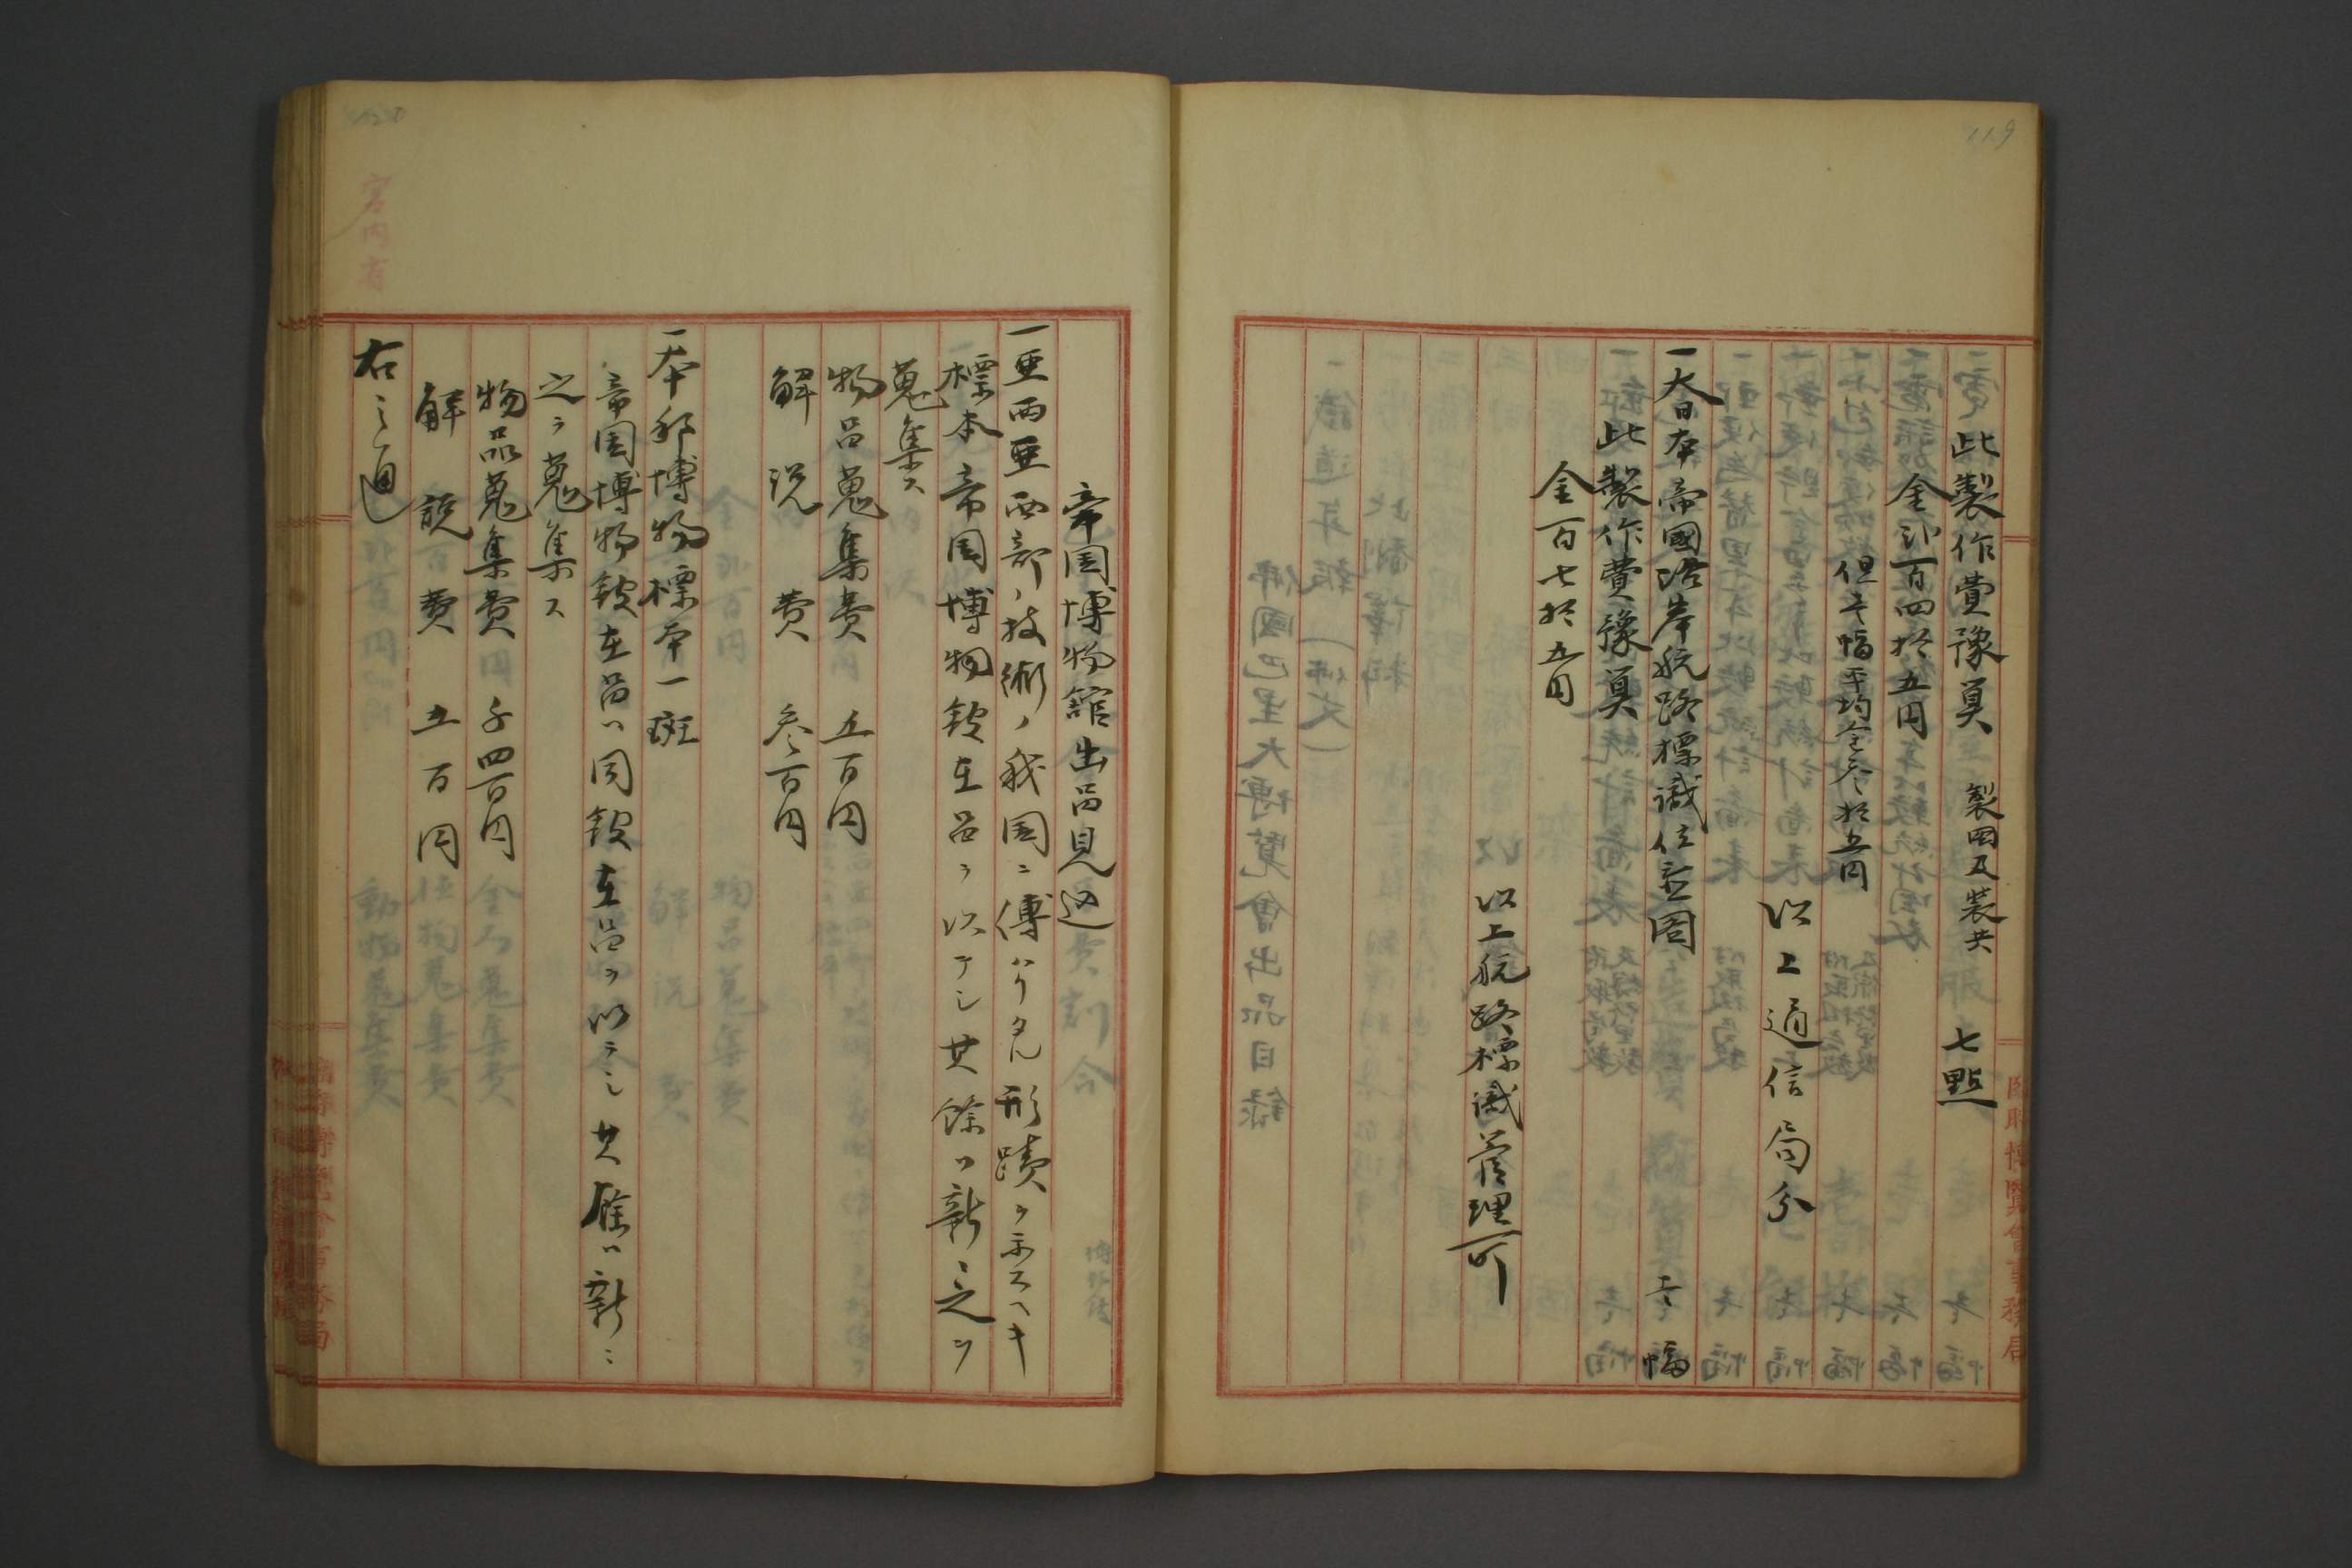 119
此製作費豫算 製図及装共 七點
金弐百四拾五円
但壱幅平均金参拾五円
以上通信局分
一大日本帝國沿岸航路標識位置図 壱幅
此製作費豫算
金百七拾五円
以上航路標識管理所
臨時博覧會事務局
帝国博物館出品見込
一亜西亜西部ノ技術ノ我国ニ傳ハリタル形蹟ヲ示スヘキ
標本帝国博物館在品ヲ以テシ其餘ハ新ニ之ヲ
蒐集ス
物品蒐集費 五百円
解説費 参百円
一本邦博物標本一斑
帝国博物館在品ハ同館在品ヲ以テシ其餘ハ新ニ
之ヲ蒐集ス
物品蒐集費 千四百円
解説費 五百円
右之通
宮内省
臨時博覧會事務局